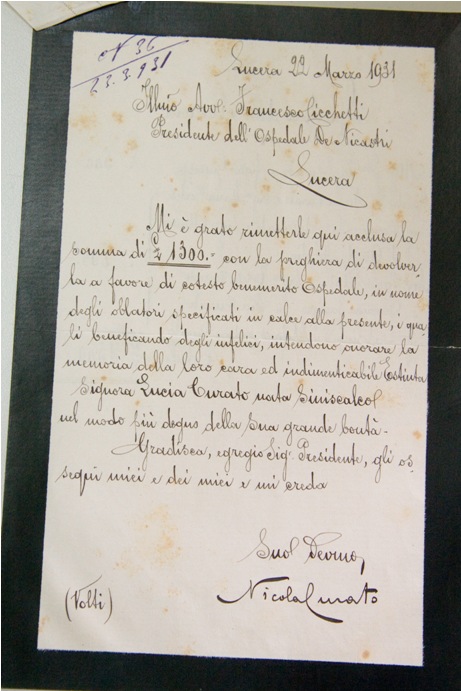 N 36
23.3.931
Lucera 22 Marzo 1931
Illmo Avv. Francesco Cicchetti
Presidente dell'Ospedale De Nicastri
Lucera
Mi è grato rimetterle qui acclusa la
somma di £ 1300.=, con la preghiera di devolver
la a favore di cotesto benemerito Ospedale, in nome
degli oblatori specificati in calce alla presente, i qua
li beneficando degli infelici, intendono onorare la
memoria della loro cara ed indimenticabile Estinta
Signora Lucia Curato nata Siniscalco
nel modo più degno della Sua grande bontà.
Gradisca, egregio Sig. Presidente, gli os
sequi miei e dei miei e mi creda
Suo Devmo,
Nicola Curato
(Volti)